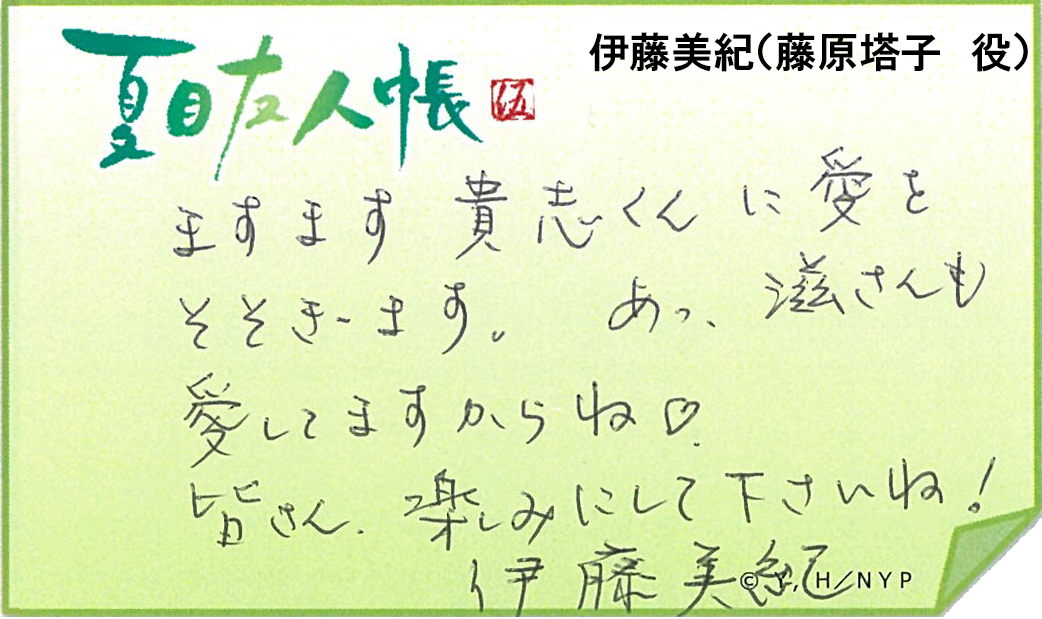 伊藤美紀(藤原塔子　役)
夏目友人帳 伍
ますます 貴志くんに愛を
そそぎーます。 あっ、滋さんも
愛してますからね♡.
皆さん、楽しみにして下さいね!
伊藤美紀
© Y, H/NYP